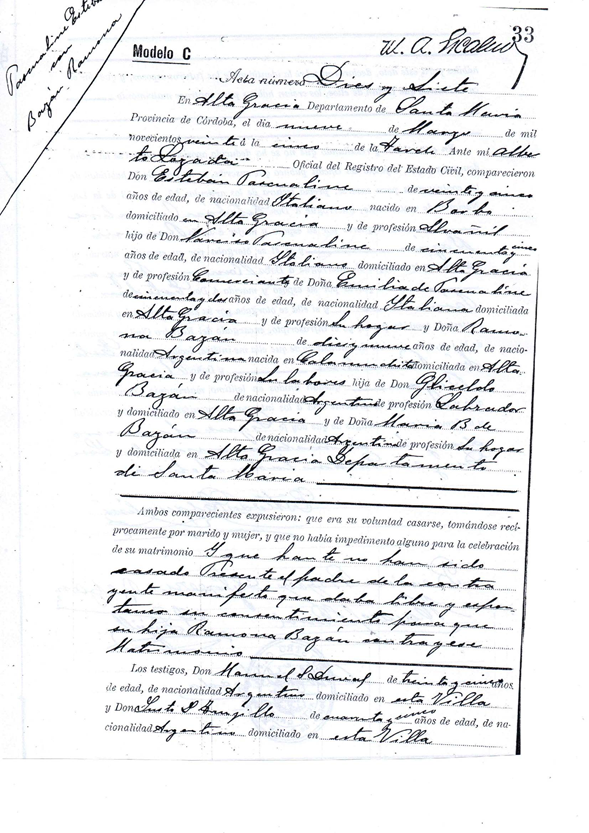 Pascualine Esteban
con
Bazán Ramona
33
Modelo C
W. A.
Acta número Dies y Siete
En Alta Gracia Departamento de Santa Maria
Provincia de Córdoba, el día nueve de Marzo de mil
novecientos veinte á la cinco de la Tarde Ante mi Alber-
to Lozada Oficial del Registro del Estado Civil, comparecieron
Don Esteban Pascualine de veinte y cinco
años de edad, de nacionalidad Italiano nacido en
domiciliado en Alta Gracia y de profesión Alvañil
hijo de Don Narciso Pascualine de cincuenta y cinco
años de edad, de nacionalidad Italiano domiciliado en Alta Gracia
y de profesión Comerciante y de Doña Emilia de Pascualine
de cincuenta y dos años de edad, de nacionalidad Italiana domiciliada
en Alta Gracia y de profesión Su hogar y Doña Ramo-
na Bazan de diez y nueve años de edad, de nacio-
nalidad Argentina nacida en Calamuchita domiciliada en Alta
Gracia y de profesión Su labores hija de Don
Bazán de nacionalidad Argentino de profesión Labrador
y domiciliado en Alta Gracia y de Doña Maria B de
Bazán de nacionalidad Argentina de profesión Su hogar
y domiciliada en Alta Gracia Departamento
di Santa Maria
Ambos comparecientes expusieron: que era su voluntad casarse, tomándose recí-
procamente por marido y mujer, y que no había impedimento alguno para la celebración
de su matrimonio Y que hante no han sido
casado Presente el padre de la contra
yente manifesto que daba libre y espon-
taneo su consentimiento para que
su hija Ramona Bazán contragese
Matrimonio
Los testigos, Don Manuel S. de treinta y cinco años
de edad, de nacionalidad Argentino domiciliado en esta Villa
y Don Justo P. Trujillo de cuarenta y cinco años de edad, de na-
cionalidad Argentino domiciliado en esta Villa